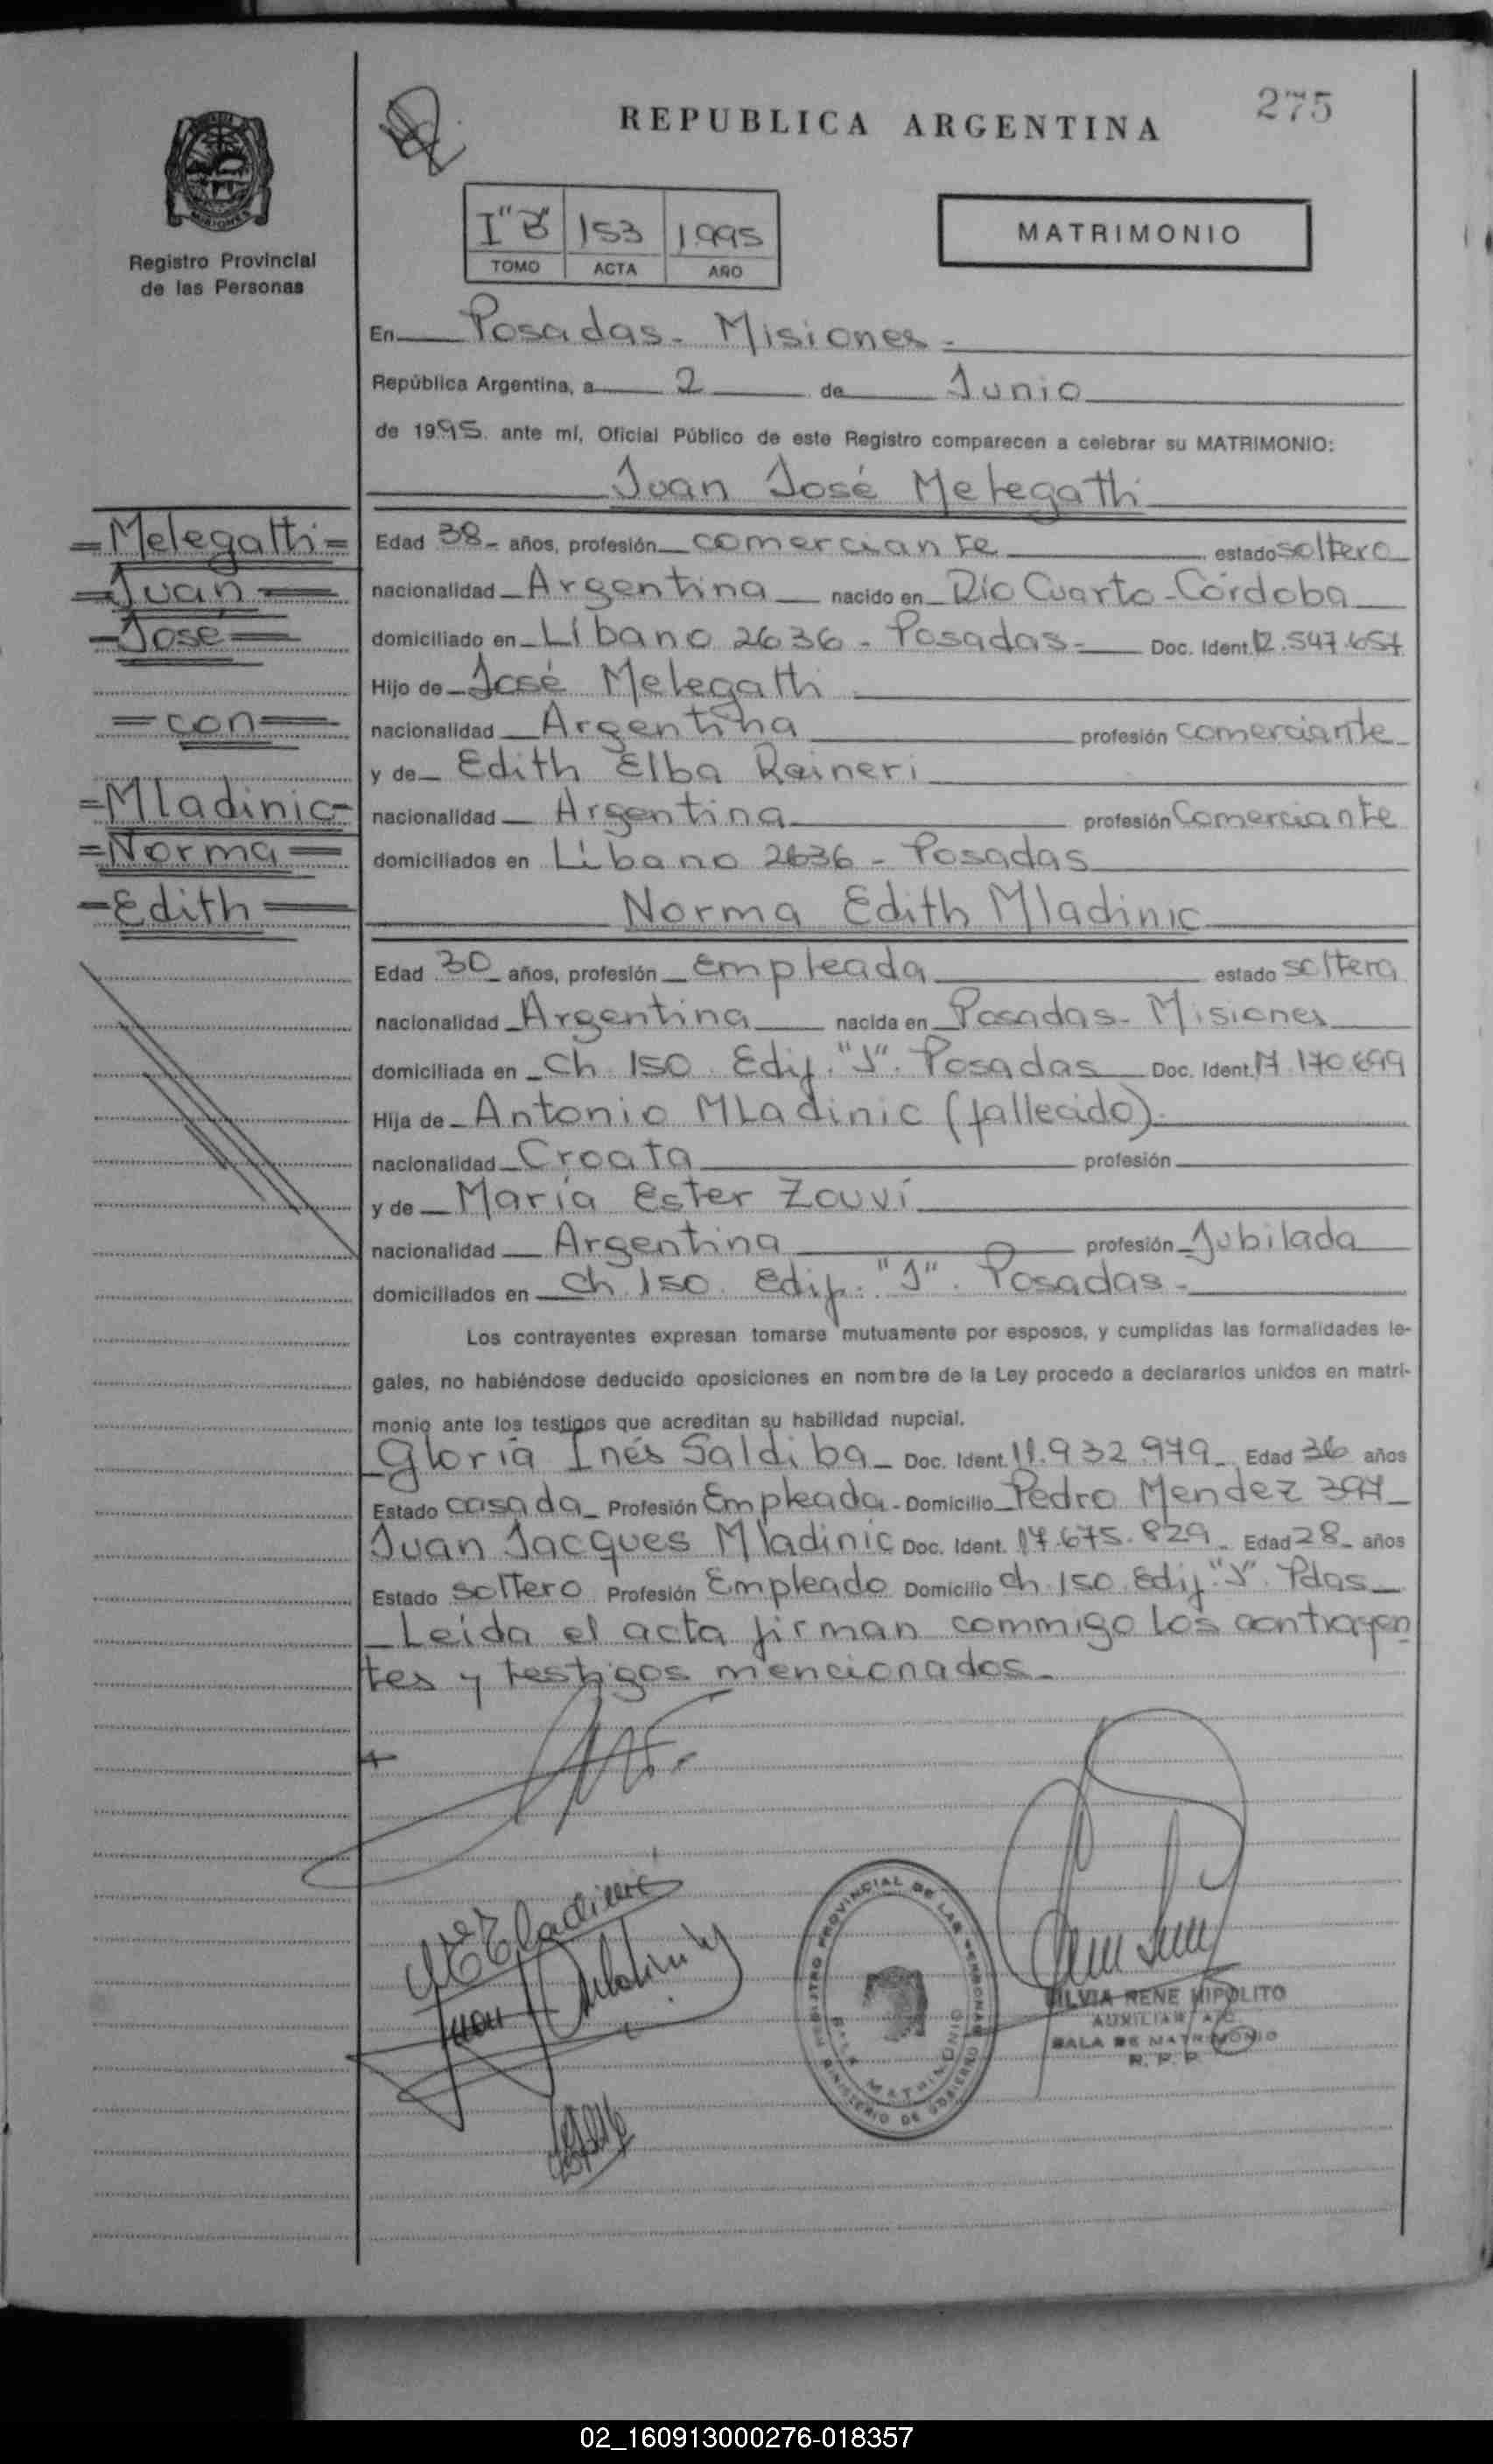 275
REPUBLICA ARGENTINA
MISIONES
Registro Provincial
de las Personas
I"B" 153 1995
TOMO ACTA AÑO
MATRIMONIO
En Posadas - Misiones -
República Argentina, a 2 de Junio
de 1995 ante mí, Oficial Público de este Registro comparecen a celebrar su MATRIMONIO:
Juan José Melegatti
=Melegatti=
=Juan=
=José=
=con=
=Mladinic=
=Norma=
=Edith=
Edad 38- años, profesión comerciante estado soltero
nacionalidad Argentina nacido en Río Cuarto-Córdoba
domiciliado en Líbano 2636 - Posadas- Doc. Ident. 12.547.657
Hijo de José Melegatti
nacionalidad Argentina profesión comerciante
y de Edith Elba Raineri
nacionalidad Argentina profesión Comerciante
domiciliados en Líbano 2636 - Posadas
Norma Edith Mladinic
Edad 30 años, profesión empleada estado soltera
nacionalidad Argentina nacida en Posadas- Misiones
domiciliada en Ch 150. Edif. "J". Posadas Doc. Ident. 17.170.699
Hija de Antonio Mladinic (fallecido).
nacionalidad Croata profesión
y de María Ester Zouví
nacionalidad Argentina profesión Jubilada
domiciliados en Ch 150. Edif. "J". Posadas -
Los contrayentes expresan tomarse mutuamente por esposos, y cumplidas las formalidades le-
gales, no habiéndose deducido oposiciones en nombre de la Ley procedo a declararlos unidos en matri-
monio ante los testigos que acreditan su habilidad nupcial.
Gloria Inés Saldiba Doc. Ident. 11.932.979 Edad 36 años
Estado casada Profesión Empleada - Domicilio Pedro Mendez 397
Juan Jacques Mladinic Doc. Ident. 17.675.829 Edad 28 años
Estado soltero Profesión Empleado Domicilio Ch 150. Edif. "J". Pdas
Leída el acta firman commigo los contrayen
tes y testigos mencionados-
REGISTRO PROVINCIAL DE LAS PERSONAS
SALA MATRIMONIO
MINISTERIO DE GOBIERNO
SILVIA RENE HIPOLITO
AUXILIAR A/C
SALA DE MATRIMONIO
R. P. P.
02_160913000276-018357